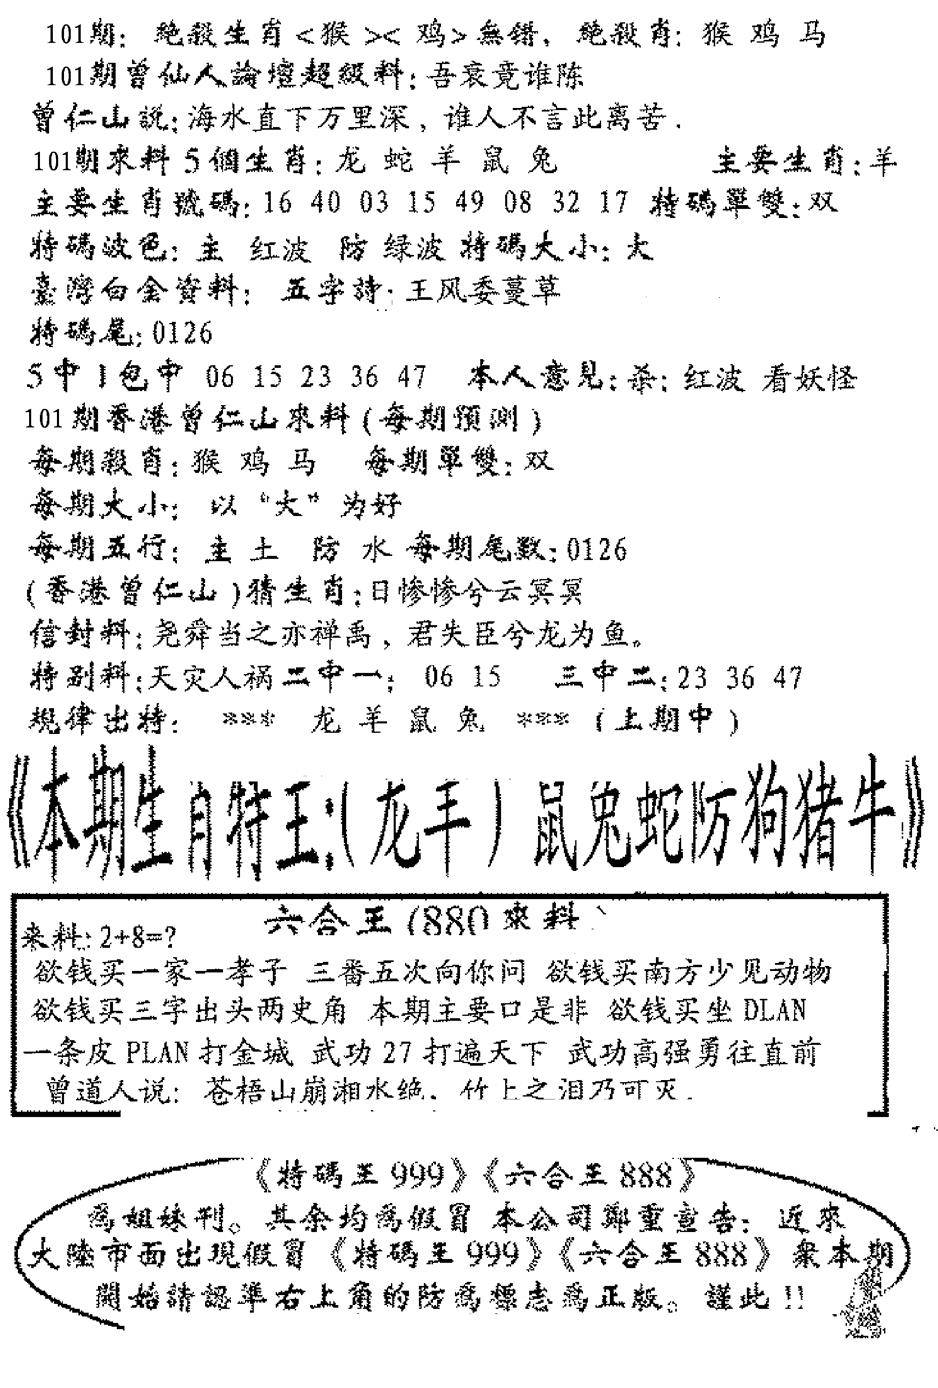 101期: 絶殺生肖<猴><鸡>無錯, 絶殺肖: 猴 鸡 马
101期曾仙人論壇超級料:吾衰竟谁陈
曾仁山説:海水直下万里深, 谁人不言此离苦.
101期來料5個生肖:龙 蛇 羊 鼠 兔 主要生肖:羊
主要生肖號碼:16 40 03 15 49 08 32 17 特碼單雙:双
特碼波色: 主 红波 防 绿波 特碼大小:大
臺灣白金資料: 五字詩:王风委蔓草
特碼尾:0126
5中1包中 06 15 23 36 47 本人意見:杀:红波 看妖怪
101期香港曾仁山來料(每期預測)
每期殺肖:猴 鸡 马 每期單雙:双
每期大小: 以“大”为好
每期五行: 主 土 防 水 每期尾数:0126
(香港曾仁山)猜生肖:日惨惨兮云冥冥
信封料:尧舜当之亦禅禹, 君失臣兮龙为鱼。
特别料:天灾人祸二中一: 06 15 三中二:23 36 47
規律出特: *** 龙 羊 鼠 兔 *** (上期中)
《本期生肖特王:(龙羊)鼠兔蛇防狗猪牛》
六合王(880來料)
来料:2+8=?
欲钱买一家一孝子 三番五次向你问 欲钱买南方少见动物
欲钱买三字出头两史角 本期主要口是非 欲钱买坐DLAN
一条皮PLAN打金城 武功27打遍天下 武功高强勇往直前
曾道人说: 苍梧山崩湘水绝, 竹上之泪乃可灭.
《特碼王999》《六合王888》
爲姐妹刊。其余均爲假冒 本公司鄭重宣告: 近來
大陸市面出現假冒《特碼王999》《六合王888》衆本期
開始請認準右上角的防爲標志爲正版。謹此!!